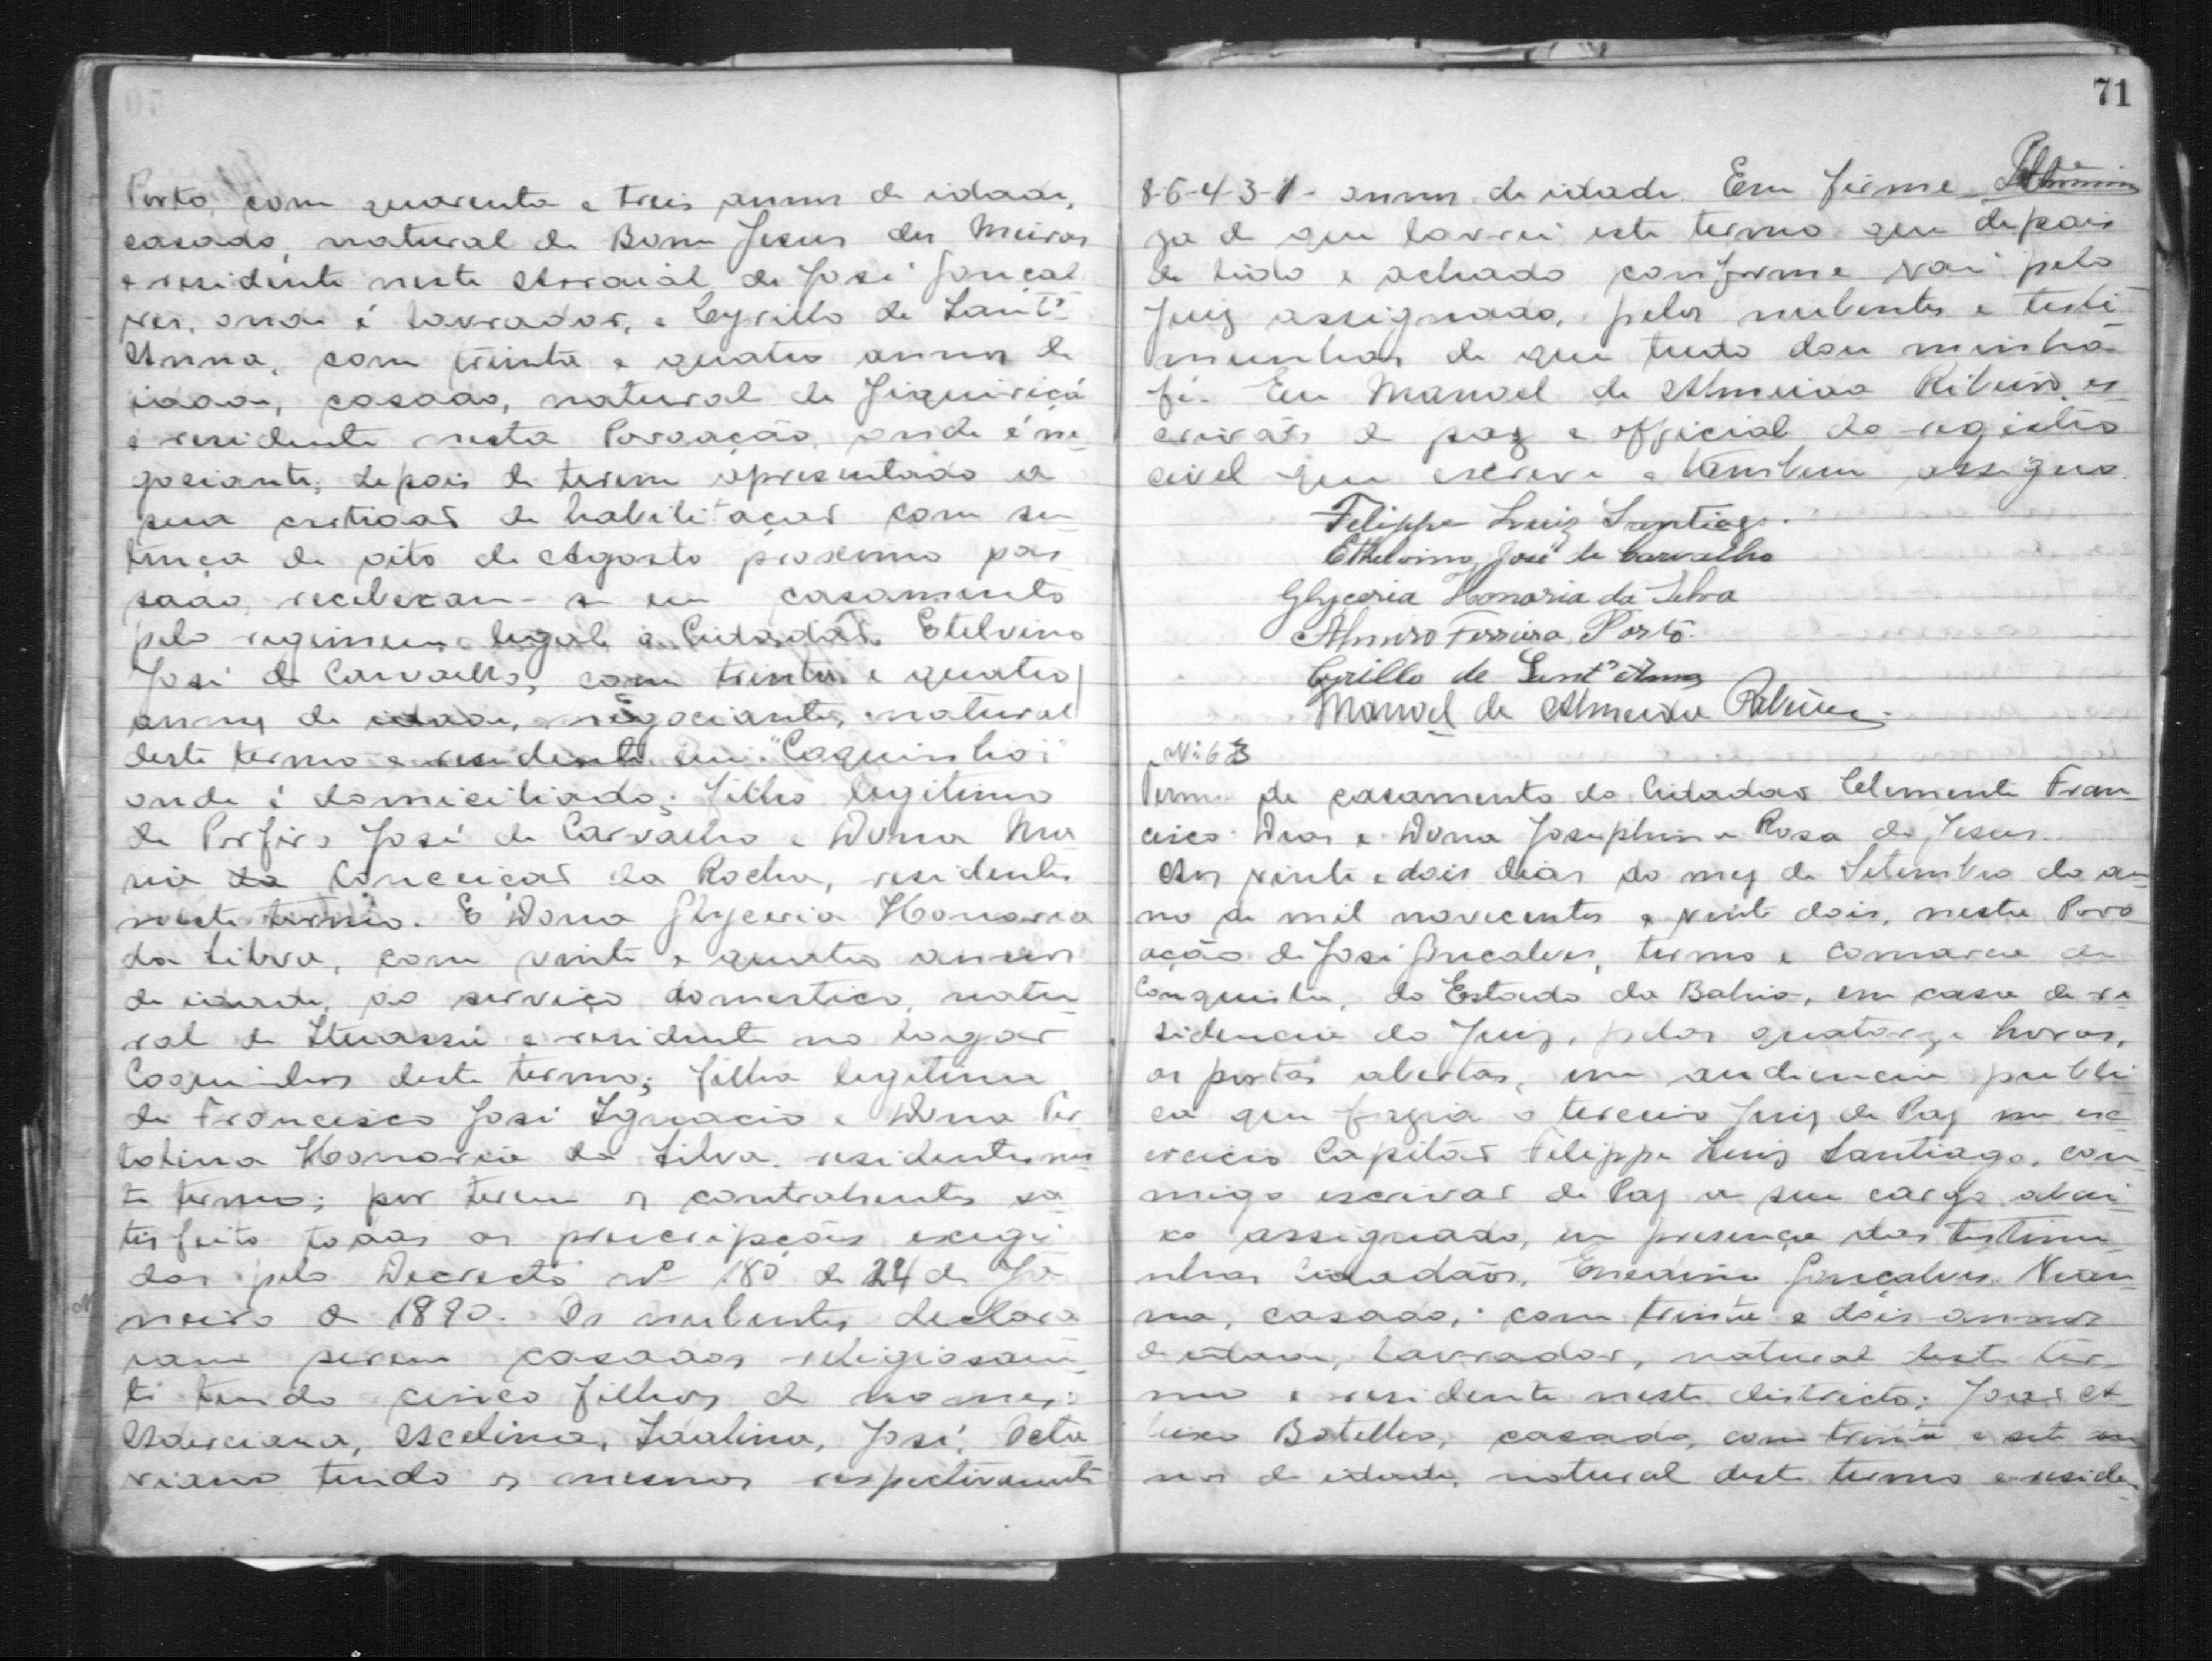 Porto, com quarenta e treis annos de idade,
casado, natural de Bom Jesus dos Meiras
e residente neste Arraial de José Gonçal
ves, onde é lavrador, e Cyrillo de Sant'
Anna, com trinta e quatro annos de
idade, casado, natural de Jiquiriçá
e residente nesta Povoação, onde é ne-
gociante; depois de terem apresentado a
sua certidão de habilitação com sen
tença de oito de Agosto proximo pas
sado, receberam-se em casamento
pelo regimem legal o Cidadão Etelvino
José de Carvalho, com trinta e quatro
annos de idade, negociante, natural
deste termo e residente em "Coquinho"
onde é domiciliado; filho legitimo
de Porfiro José de Carvalho e Dona Ma
ria da Conceiçao da Rocha, residentes
neste termo. E Dona Glyceria Honoria
da Silva, com vinte e quatro annos
de idade, do serviço domestico, natu
ral de Ituassú e residente no logar
Coquinhos deste termo; filha legitima
de Francisco José Ignacio e Dona Per
tolina Honoria da Silva, residentes nes
te termo; por terem os contrahentes sa
tisfeito todas as prescripções exegi
das pelo Decrecto nº 180 de 24 de Ja
neiro de 1890. Os nubentes declara
ram serem casados religiosam
te tendo cinco filhos de nomes:
Marciana, Ascelina, Idalina, José, Octa
viano tendo os mesmos respectivamente
71
8-6-4-3-1- annos de idade. Em firme
za de que lavrei este termo que depois
de lido e achado conforme vai pelo
Juiz assignado, pelos nubentes e teste
munhas de que tudo dou minha
fé. Eu Manoel de Almeida Ribeiro, es
crivão de paz e official do registro
civel que escrevi e tambem assigno.
Felippe Luiz Santiago.
Ethelvino José de Carvalho
Glyceria Honoria da Silva
Alvino Ferreira Porto.
Cyrillo de Sant'Anna
Manoel de Almeida Ribeiro.
Nº 63
Termo de casamento do Cidadao Clemente Fran
cisco Dias e Dona Josephina Rosa de Jesus.
Aos vinte e dois dias do mez de Setembro do an
no de mil novecentos e vinte dois, nesta Povo
ação de José Gonçalves, termo e comarca de
Conquista, do Estado da Bahia, em casa de re
sidencia do Juiz, pelas quatorze horas,
as portas abertas, em audiencia publi
ca que fazia o terceiro Juiz de Paz em ex
ercicio Capitão Felippe Luiz Santiago, com
migo escrivao de Paz a seu cargo abai
xo assignado, em presença das testemu
nhas Cidadãos, Gonçalves Vian
na, casado, com trinta e dois annos
de idade, lavrador, natural deste ter
mo e residente neste districto; João A
leixo Botelho, casado, com trinta e sete an
nos de idade, natural deste termo e residen